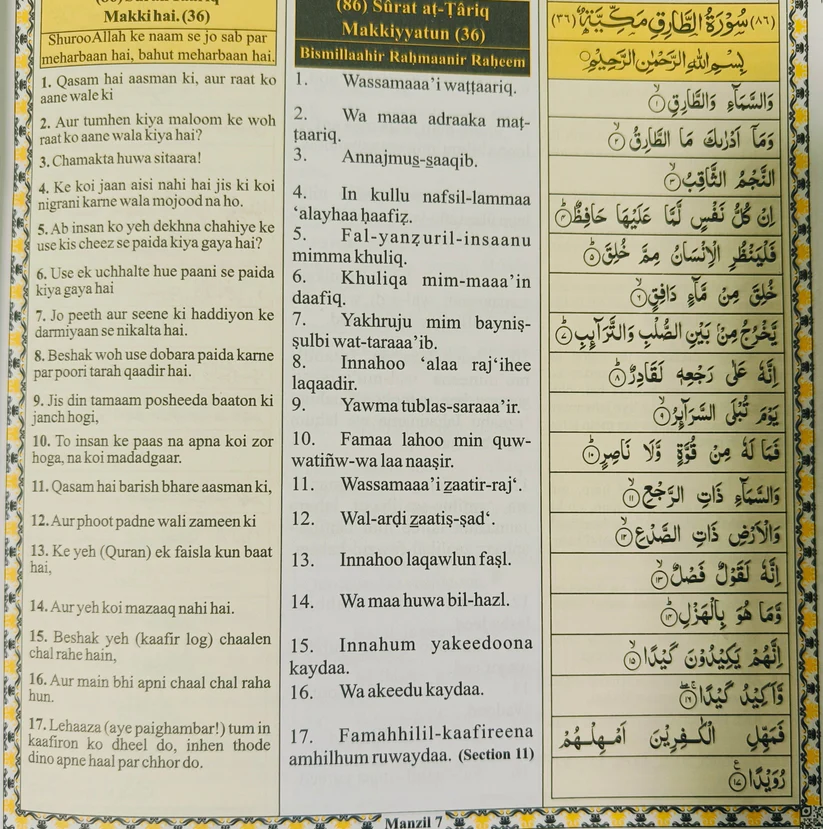 Makki hai. (36)
Shuroo Allah ke naam se jo sab par
meharbaan hai, bahut meharbaan hai.
1. Qasam hai aasman ki, aur raat ko
aane wale ki
2. Aur tumhen kiya maloom ke woh
raat ko aane wala kiya hai?
3. Chamakta huwa sitaara!
4. Ke koi jaan aisi nahi hai jis ki koi
nigrani karne wala mojood na ho.
5. Ab insan ko yeh dekhna chahiye ke
use kis cheez se paida kiya gaya hai?
6. Use ek uchhalte hue paani se paida
kiya gaya hai
7. Jo peeth aur seene ki haddiyon ke
darmiyaan se nikalta hai.
8. Beshak woh use dobara paida karne
par poori tarah qaadir hai.
9. Jis din tamaam posheeda baaton ki
janch hogi,
10. To insan ke paas na apna koi zor
hoga, na koi madadgaar.
11. Qasam hai barish bhare aasman ki,
12. Aur phoot padne wali zameen ki
13. Ke yeh (Quran) ek faisla kun baat
hai,
14. Aur yeh koi mazaaq nahi hai.
15. Beshak yeh (kaafir log) chaalen
chal rahe hain,
16. Aur main bhi apni chaal chal raha
hun.
17. Lehaaza (aye paighambar!) tum in
kaafiron ko dheel do, inhen thode
dino apne haal par chhor do.
(86) Sûrat aṭ-Ṭâriq
Makkiyyatun (36)
Bismillaahir Raḥmaanir Raḥeem
1. Wassamaaa’i waṭṭaariq.
2. Wa maaa adraaka maṭ-
ṭaariq.
3. Annajmus̲-s̲aaqib.
4. In kullu nafsil-lammaa
‘alayhaa ḥaafiẓ.
5. Fal-yanẓuril-insaanu
mimma khuliq.
6. Khuliqa mim-maaa’in
daafiq.
7. Yakhruju mim bayniṣ-
ṣulbi wat-taraaa’ib.
8. Innahoo ‘alaa raj‘ihee
laqaadir.
9. Yawma tublas-saraaa’ir.
10. Famaa lahoo min quw-
watiñw-wa laa naaṣir.
11. Wassamaaa’i z̲aatir-raj‘.
12. Wal-arḍi z̲aatiṣ-ṣad‘.
13. Innahoo laqawlun faṣl.
14. Wa maa huwa bil-hazl.
15. Innahum yakeedoona
kaydaa.
16. Wa akeedu kaydaa.
17. Famahhilil-kaafireena
amhilhum ruwaydaa. (Section 11)
(٨٦) سُوْرَةُ الطَّارِقِ مَكِّيَّةٌ (٣٦)
بِسْمِ اللهِ الرَّحْمٰنِ الرَّحِيْمِ
وَالسَّمَآءِ وَالطَّارِقِ ۙ﴿١﴾
وَمَآ اَدْرٰىكَ مَا الطَّارِقُ ۙ﴿٢﴾
النَّجْمُ الثَّاقِبُ ۙ﴿٣﴾
اِنْ كُلُّ نَفْسٍ لَّمَّا عَلَيْهَا حَافِظٌ ؕ﴿٤﴾
فَلْيَنْظُرِ الْاِنْسَانُ مِمَّ خُلِقَ ؕ﴿٥﴾
خُلِقَ مِنْ مَّآءٍ دَافِقٍ ۙ﴿٦﴾
يَّخْرُجُ مِنْۢ بَيْنِ الصُّلْبِ وَالتَّرَآئِبِ ؕ﴿٧﴾
اِنَّهٗ عَلٰى رَجْعِهٖ لَقَادِرٌ ؕ﴿٨﴾
يَوْمَ تُبْلَى السَّرَآئِرُ ۙ﴿٩﴾
فَمَا لَهٗ مِنْ قُوَّةٍ وَّلَا نَاصِرٍ ؕ﴿١٠﴾
وَالسَّمَآءِ ذَاتِ الرَّجْعِ ۙ﴿١١﴾
وَالْاَرْضِ ذَاتِ الصَّدْعِ ۙ﴿١٢﴾
اِنَّهٗ لَقَوْلٌ فَصْلٌ ۙ﴿١٣﴾
وَّمَا هُوَ بِالْهَزْلِ ؕ﴿١٤﴾
اِنَّهُمْ يَكِيْدُوْنَ كَيْدًا ۙ﴿١٥﴾
وَّاَكِيْدُ كَيْدًا ۚۖ﴿١٦﴾
فَمَهِّلِ الْكٰفِرِيْنَ اَمْهِلْهُمْ
رُوَيْدًا ﴿١٧﴾
Manzil 7